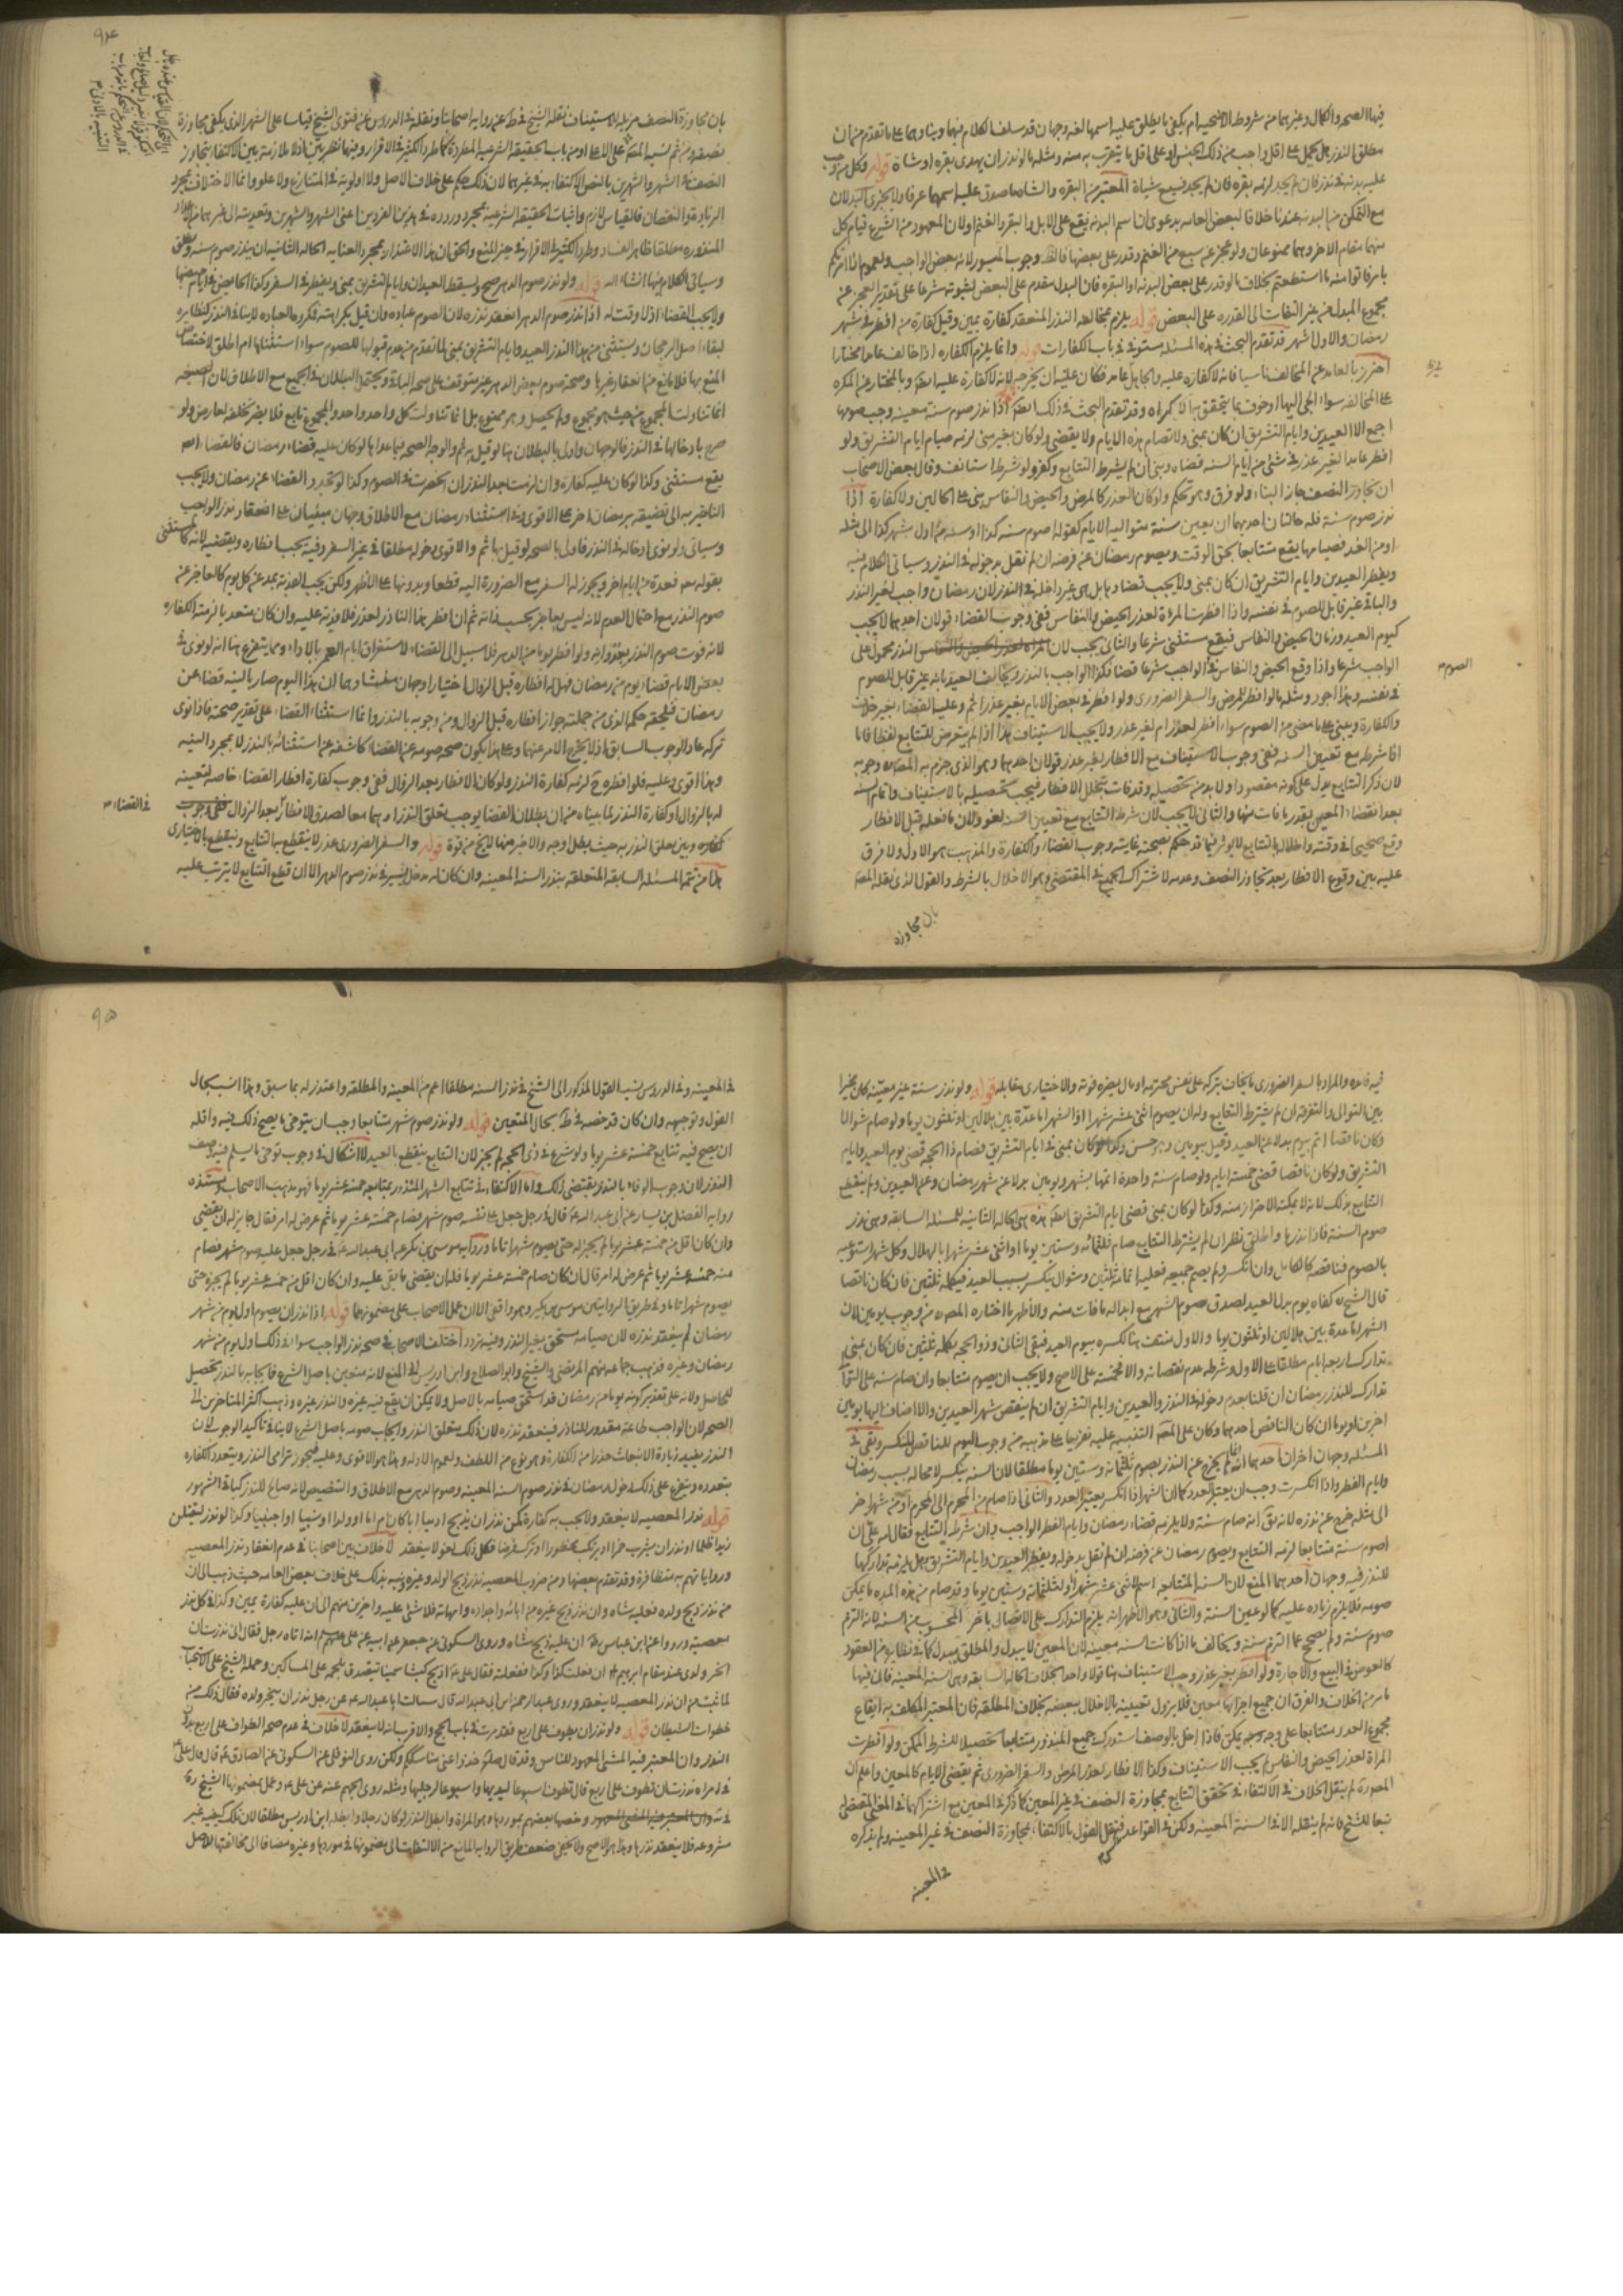 فيها الصحه والكمال وغيرهما من شروط الاضحيه ام يكفى ما يطلق عليه اسمها لغه وجهان قد سلف الكلام فيهما وبناوهما على ما تقدم من ان
مطلق النذر هل يحمل على اقل واجب من ذلك الجنس او على اقل ما يتقرب به منه ومثله ما لو نذر ان يهدى بقره او شاة قوله وكل من وجب
عليه بدنه فى نذر فان لم يجد لزمه بقره فان لم يجد فسبع شياة المعتبر من البقره والشاه ما صدق عليه اسمهما عرفا ولا يجزى البدلان
مع التمكن من البدنه عندنا خلافا لبعض العامه بدعوى ان اسم البدنه يقع على الابل والبقر والغنم ولان المعهود من الشرع قيام كل
منهما مقام الاخر وهما ممنوعان ولو عجز عن سبع من الغنم وقدر على بعضها فالظ وجوب الميسور لانه بعض الواجب ولعموم اذا امرتكم
بامر فاتوا منه ما استطعتم بخلاف ما لو قدر على بعض البدنه او البقره فان البدل مقدم على البعض لثبوته شرعا على تقدير العجز عن
مجموع المبدل منه من غير التفات الى القدره على البعض قوله يلزم بمخالفه النذر المنعقد كفارة يمين وقيل كفارة من افطر فى شهر
رمضان والاول اشهر قد تقدم البحث فى هذه المسئله مستوفى فى باب الكفارات قوله وانما يلزم الكفاره اذا خالف عامدا مختارا
احترز بالعامد عن المخالف ناسيا فانه لا كفارة عليه والجاهل عامد فكان عليه ان يخرجه لانه لا كفارة عليه ايضا وبالمختار عن المكره
على المخالفه سواء الجى اليها او خوف بما يتحقق به الاكراه وقد تقدم البحث فى ذلك ايضا اذا نذر صوم سنة معينه وجب صومها
اجمع الا العيدين وايام التشريق ان كان بمنى ولا تصام هذه الايام ولا يقضى ولو كان بغير منى لزمه صيام ايام التشريق ولو
افطر عامدا لغير عذر فى شى من ايام السنه قضاه وبنى ان لم يشرط التتابع وكفر ولو شرط استانف وقال بعض الاصحاب
ان تجاوز النصف جاز البناء ولو فرق وهو تحكم ولو كان لعذر كالمرض والحيض والنفاس بنى على الحالين ولا كفارة اذا
نذر صوم سنة فله حالتان احديهما ان يعين سنة متواليه الايام كقوله اصوم سنه كذا او سنه من اول شهر كذا الى مثله
او من الغد فصيامها يقع متتابعا بحق الوقت ويصوم رمضان عن فرضه ان لم نقل بدخوله فى النذر وسياتى الكلام فيه
ويفطر العيدين وايام التشريق ان كان بمنى ولا يجب قضاوها بل هى غير داخله فى النذر لان رمضان واجب لغير النذر
والباقى غير قابل للصوم فى نفسه واذا افطرت المرءة لعذر الحيض والنفاس ففى وجوب القضاء قولان احدهما لا يجب
كيوم العيد وزمان الحيض والنفاس فيقع مستثنى شرعا والثانى يجب لان النذر محمول على
الواجب شرعا واذا وقع الحيض والنفاس فى الواجب شرعا قضا فكذا الواجب بالنذر ويخالف العيد بانه غير قابل للصوم
فى نفسه وهذا اجود ومثله ما لو افطر للمرض والسفر الضرورى ولو افطر فى بعض الايام بغير عذر اثم وعليه القضاء بغير خلاف
والكفارة ويبنى على ما مضى من الصوم سواء افطر لعذر ام لغير عذر ولا يجب الاستيناف هذا اذا لم يتعرض للتتابع لفظا فاما
اذا شرطه مع تعيين السنه ففى وجوب الاستيناف مع الافطار بغير عذر قولان احدهما وهو الذى جزم به المصنف وجوبه
لان ذكر التتابع يدل على كونه مقصودا ولا بد من تحصيله وقد فات بتخلل الافطار فيجب تحصيله بالاستيناف واتمام السنه
بعد انقضاء المعين بقدر ما فات منها والثانى لا يجب لان شرط التتابع مع تعيين السنه لغو ولان ما فعله قبل الافطار
وقع صحيحا فى وقته واخلاله بالتتابع لا يوثر فيما قد حكم بصحته غايته وجوب القضاء والكفارة والمذهب هو الاول ولا فرق
عليه بين وقوع الافطار بعد تجاوز النصف وعدمه لاشتراك الجميع فى المقتضى وهو الاخلال بالشرط والقول الذى نقله المصنف
بان مجاوزه
الصوم
بان مجاوزة النصف مزيل للاستيناف نقله الشيخ فى ط عن رواية اصحابنا ونقله فى الدروس عن فتوى الشيخ قياسا على الشهر الذى يكفى مجاوزة
النصف فى الشهر والشهرين بالنص الاكتفاء به فى غيرهما لان ذلك حكم على خلاف الاصل ولا اولويه فى المتنازع ولا علو وانما الاختلاف بمجرد
الزيادة والنقصان فالقياس لازم واثبات الحقيقه الشرعيه بمجرد وروده فى هذين الفردين اعنى الشهر والشهرين وتعديته الى غيرهما من
المنذوره مطلقا ظاهر الفساد وطرد الكثير فى الاقرار فى حيز المنع والحق ان هذا الاعتذار بمجرد العنايه الحاله الثانيه ان ينذر صوم سنه ويطلق
وسياتى الكلام فيها انشاء الله قوله ولو نذر صوم الدهر صح ويسقط العيدان وايام التشريق بمنى ويفطر فى السفر وكذا الحايض فى ايام حيضها
ولا يجب القضاء اذ لا وقت له اذا نذر صوم الدهر انعقد نذره لان الصوم عباده وان قيل بكراهته فمكروه العباده لا ينافى النذر كنظايره
لبقاء اصل الرجحان ويستثنى من هذا النذر العيد وايام التشريق بمنى لما تقدم من عدم قبولها للصوم سواء استثناها ام اطلق لاختصاص
المنع بها فلا مانع من انعقاد غيرها وصحة صوم بعض الدهر غير متوقف على صحة الباقى ويحتمل البطلان فى الجميع مع الاطلاق لان الصيغه
انما تناولت المجموع من حيث هو مجموع ولم يحصل وهو ممنوع بل انما تناولت كل واحد واحد والمجموع تابع فلا يضر تخلفه لعارض ولو
صرح بادخالها فى النذر فالوجهان واولى بالبطلان هنا لو قيل به ثم والوجه الصحه فيما عداها لو كان عليه قضاء رمضان فالقضاء
يقع مستثنى وكذا لو كان عليه كفارة وان لزمت بعد النذر ان انحصرت فى الصوم وكذا لو تجدد القضاء عن رمضان ولا يجب
التاخير به الى تضيقه برمضان اخر على الاقوى وفى استثناء رمضان مع الاطلاق وجهان مبنيان على انعقاد نذر الواجب
وسياتى ولو نوى ادخاله فى النذر فاولى بالصحه لو قيل بها ثم والاقوى دخوله مطلقا فى غير السفر وفيه يجب افطاره ويقضيه لانه كالمستثنى
بقوله تعه فعدة من ايام اخر ويجوز له السفر مع الضرورة اليه قطعا وبدونها على الاظهر ولكن يجب الفدية بمد عن كل يوم كالعاجز عن
صوم النذر مع احتمال العدم لانه ليس بعاجز بحسب ذاته ثم ان افطر هذا الناذر لعذر فلا فدية عليه وان كان متعديا لزمته الكفاره
لانه فوت صوم النذر بعدوانه ولو افطر يوما من الدهر فلا سبيل الى القضاء لاستغراق ايام العمر بالاداء ومما يتفرع هنا انه لو نوى فى
بعض الايام قضاء يوم من رمضان فهل له افطاره قبل الزوال اختيارا وجهان منشاوهما ان هذا اليوم صار بالنيه قضاء عن
رمضان فيلحقه حكمه الذى من جملته جواز افطاره قبل الزوال ومن وجوبه بالنذر وانما استثناء القضاء على تقدير صحته فاذا نوى
تركه عاد الوجوب السابق اذ لا يخرج الامر عنهما وعلى هذا يكون صحه صومه عن القضاء كاشفه عن استثنائه بالنذر لا بمجرد النيه
وهذا اقوى وعليه فلو افطره ح لزمه كفارة النذر ولو كان الافطار بعد الزوال ففى وجوب كفارة افطار القضاء خاصه لتعينه
له بالزوال او كفارة النذر لما بيناه من ان بطلان القضا يوجب تعلق النذر او هما معا لصدق الافطار بعد الزوال
فى القضاء
وبين تعلق النذر به حيث بطل اوجه والاخير منها لا يخ من قوة قوله والسفر الضرورى عذر لا ينقطع به التتابع وينقطع بالاختيارى
هذا من تتمه المسئله السابقه المتعلقه بنذر السنه المعينه وان كان له مدخل يسير فى نذر صوم الدهر الا ان قطع التتابع لا يترتب عليه
٩٤
فيه قاعده والمراد بالسفر الضرورى ما يخاف بتركه على نفس محترمه او مال يضره فوته والاختيارى مقابله قوله ولو نذر سنة غير معينه كان مخيرا
بين التوالى والتفرقه ان لم يشترط التتابع وله ان يصوم اثنى عشر شهرا اذ الشهر اما عدة بين هلالين او ثلثون يوما ولو صام شوالا
وكان ناقصا اتم بيوم بدلا عن العيد وقيل بيومين وهو حسن وكذا لو كان بمنى فى ايام التشريق فصام ذا الحجه قضى يوم العيد وايام
التشريق ولو كان ناقصا قضى خمسة ايام ولو صام سنة واحدة اتمها بشهر ويومين بدلا عن شهر رمضان وعن العيدين ولم ينقطع
التتابع بذلك لانه لا يمكنه الاحتراز منه وكذا لو كان بمنى قضى ايام التشريق ايضا هذه هى الحاله الثانيه للمسئله السابقه وهى نذر
صوم السنة فاذا نذرها واطلق نظر ان لم يشترط التتابع صام ثلثمائه وستين يوما او اثنى عشر شهرا بالهلال وكل شهر استوعبه
بالصوم فناقصه كالكامل وان انكسر ولم يصم جميعه فعليه اتمامه ثلثين وشوال ينكسر بسبب العيد فيكمله ثلثين فان كان ناقصا
قال الشيخ ره كفاه يوم بدل العيد لصدق صوم الشهر مع ابداله ما فات منه والاظهر ما اختاره المصنف من وجوب يومين لان
الشهر اما عدة بين هلالين او ثلثون يوما والاول منتف هنا لكسره بيوم العيد فبقى الثانى وذو الحجه يكمله ثلثين فان كان بمنى
تدارك اربعه ايام مطلقا على الاول وشرطه عدم نقصانه والا فخمسة على الاصح ولا يجب ان يصوم متتابعا وان صام سنه على التوالى
تدارك للنذر رمضان ان قلنا بعدم دخوله فى النذر والعيدين وايام التشريق ان لم ينقص شهر العيدين والا اضاف اليها يومين
اخرين او يوما ان كان الناقص احدهما وكان على المصنف التنبيه عليه تفريعا على مذهبه من وجوب اليوم للناقص المنكسر وبقى فى
المسئله وجهان اخران احدهما انه انما يخرج عن النذر بصوم ثلثمائه وستين يوما مطلقا لان السنه ينكسر لا محاله بسبب رمضان
وايام الفطر واذا انكسرت وجب ان يعتبر العدد كما ان الشهر اذا انكسر يعتبر العدد والثانى اذا صام من المحرم الى المحرم او من شهر اخر
الى مثله خرج عن نذره لانه يق انه صام سنة ولا يلزمه قضاء رمضان وايام الفطر الواجب وان شرط فيه التتابع فقال لله على ان
اصوم سنه متتابعا لزمه التتابع ويصوم رمضان عن فرضه ان لم نقل بدخوله ويفطر العيدين وايام التشريق وهل يلزمه تداركها
للنذر فيه وجهان احدهما المنع لان السنه المتتابعه اسم لاثنى عشر شهرا او لثلثمائة وستين يوما وقد صام من هذه المده ما يمكن
صومه فلا يلزم زيادة عليه كما لو عين السنة والثانى وهو الاظهر انه يلزم التدارك على الاتصال باخر المحسوب من السنه لانه التزم
صوم سنة ولم يصح عما التزم سنة ويخالف ما اذا كانت السنه معينه لان المعين لا يبدل والمطلق يبدل كما فى نظايره من العقود
كالعوض فى البيع والاجارة ولو افطر بغير عذر وجب الاستيناف هنا قولا واحدا بخلاف الحاله السابقه وهى السنه المعينه فان فيها
مامر من الخلاف والفرق ان جميع اجزائها معين فلا يزول تعيينه بالاخلال ببعضه بخلاف المطلقه فان المعتبر المكلف به ايقاع
مجموع العدد متتابعا على وجه يمكن فاذا اخل بالوصف استدرك جميع المنذور متتابعا تحصيلا للشرط الممكن ولو افطرت
المراة لعذر الحيض والنفاس لم يجب الاستيناف وكذا الافطار لعذر المرض والسفر الضرورى ثم يقضى الايام كالمعين واعلم ان
المصنف ره لم ينقل الخلاف فى الاكتفاء فى تحقق التتابع بمجاوزة النصف فى غير المعين كما ذكر فى المعين مع اشتراكهما فى المعنى المقتضى له
تبعا للشيخ فانه لم ينقله الا فى السنة المعينه ولكن فى القواعد نقل القول بالاكتفاء بمجاوزة النصف فى غير المعينه ولم يذكره
فى المعينه
٩٥
فى المعينه وفى الدروس نسب القول المذكور الى الشيخ فى نذر السنه مطلقا اعم من المعينه والمطلقه واعتذر له بما سبق وهذا انسب بحال
القول وتوجيهه وان كان قد خصه فى ط بحال المتعين قوله ولو نذر صوم شهر متتابعا وجب ان يتوخى ما يصح ذلك فيه واقله
ان يصح فيه تتابع خمسة عشر يوما ولو شرع فى ذى الحجه لم يجز لان التتابع ينقطع بالعيد لا اشكال فى وجوب توخى ما يسلم فيه وصف
النذر لان وجوب الوفاء بالنذر يقتضى ذلك واما الاكتفاء فى تتابع الشهر المنذور بمتابعه خمسة عشر يوما فهو مذهب الاصحاب ومستنده
رواية الفضيل بن يسار عن ابى عبد الله ع قال فى رجل جعل على نفسه صوم شهر فصام خمسة عشر يوما ثم عرض له امر فقال جايز له ان يقضى
وان كان اقل من خمسة عشر يوما لم يجز له حتى يصوم شهرا تاما ورواية موسى بن بكر عن ابى عبد الله ع فى رجل جعل عليه صوم شهر فصام
منه خمسة عشر يوما ثم عرض له امر قال ان كان صام خمسة عشر يوما فله ان يقضى ما بقى عليه وان كان اقل من خمسة عشر يوما لم يجزه حتى
يصوم شهرا تاما وفى طريق الروايتين موسى بن بكير وهو واقفى الا ان عمل الاصحاب على مضمونهما قوله اذا نذر ان يصوم اول يوم من شهر
رمضان لم ينعقد نذره لان صيامه مستحق بغير النذر وفيه تردد اختلف الاصحاب فى صحه نذر الواجب سواء فى ذلك اول يوم من شهر
رمضان وغيره فذهب جماعه منهم المرتضى والشيخ وابو الصلاح وابن ادريس الى المنع لانه متعين باصل الشرع فايجابه بالنذر تحصيل
للحاصل ولانه على تقدير كونه يوما من رمضان قد استحق صيامه بالاصل ولا يمكن ان يقع فيه غيره والنذر غيره وذهب اكثر المتاخرين الى
الصحه لان الواجب طاعة مقدور للناذر فينعقد نذره لان ذلك متعلق النذر وايجاب صومه باصل الشرع لا ينافى تاكيد الوجوب لان
النذر يفيد زيادة الانبعاث حذرا من الكفارة وهو نوع من اللطف ولعموم الادله وهذا هو الاقوى وعليه فيجوز ترامى النذر ويتعدد الكفاره
بتعدده ويتفرع على ذلك دخول رمضان فى نذر صوم السنه المعينه وصوم الدهر مع الاطلاق والتخصيص لانه صالح للنذر كباقى الشهور
قوله نذر المعصيه لا ينعقد ولا يجب به كفارة كمن نذر ان يذبح ادميا ابا كان او اما او ولدا او نسيبا او اجنبيا وكذا لو نذر ليقتلن
زيدا ظلما او نذر ان يشرب خمرا او يرتكب محظورا او يترك فرضا فكل ذلك لغو لا ينعقد لا خلاف بين اصحابنا فى عدم انعقاد نذر المعصيه
ورواياتهم به متظافرة وقد تقدم بعضها ومن ضروب المعصيه نذر ذبح الولد وغيره ونبه بذلك على خلاف بعض العامه حيث ذهب الى ان
من نذر ذبح ولده فعليه شاه وان نذر ذبح غيره من ابائه واجداده وامهاته فلا شى عليه واخرين منهم الى ان عليه كفارة يمين وكذا فى كل نذر
معصيه ورووا عن ابن عباس رض ان عليه ذبح شاه وروى السكونى عن جعفر عن ابيه عن على عليهم السلم انه اتاه رجل فقال انى نذرت ان
انحر ولدى عند مقام ابرهيم ع ان فعلت كذا وكذا ففعلته فقال على ع اذبح كبشا سمينا تتصدق بلحمه على المساكين وحمله الشيخ على الاستحباب
لما ثبت من ان نذر المعصيه لا ينعقد وروى عبد الرحمن بن ابى عبد الله قال سالت ابا عبد الله ع عن رجل نذر ان ينحر ولده فقال ذلك من
خطوات الشيطان قوله ولو نذر ان يطوف على اربع فقد مرت فى باب الحج والاقرب انه لا ينعقد لا خلاف فى عدم صحه الطواف على اربع بدون
النذر وان المعتبر فيه المشى المعهود للناس وقد قال صلم خذوا عنى مناسككم ولكن روى النوفلى عن السكونى عن الصادق ع قال قال على ع
فى امراة نذرت ان تطوف على اربع قال تطوف اسبوعا ليديها واسبوعا لرجليها ومثله روى ابو الجهم عنه عن على ع وعمل بمضمونها الشيخ ره
وخصها بعضهم بموردها وهو المراة وابطل النذر لو كان رجلا وابطله ابن ادريس مطلقا لان تلك كيفيه غير
مشروعه فلا ينعقد نذرها وهذا هو الاصح ولا يخفى ضعف طريق الروايه المانع من الالتفات الى مضمونها فى موردها وغيره مضافا الى مخالفتها للاصل